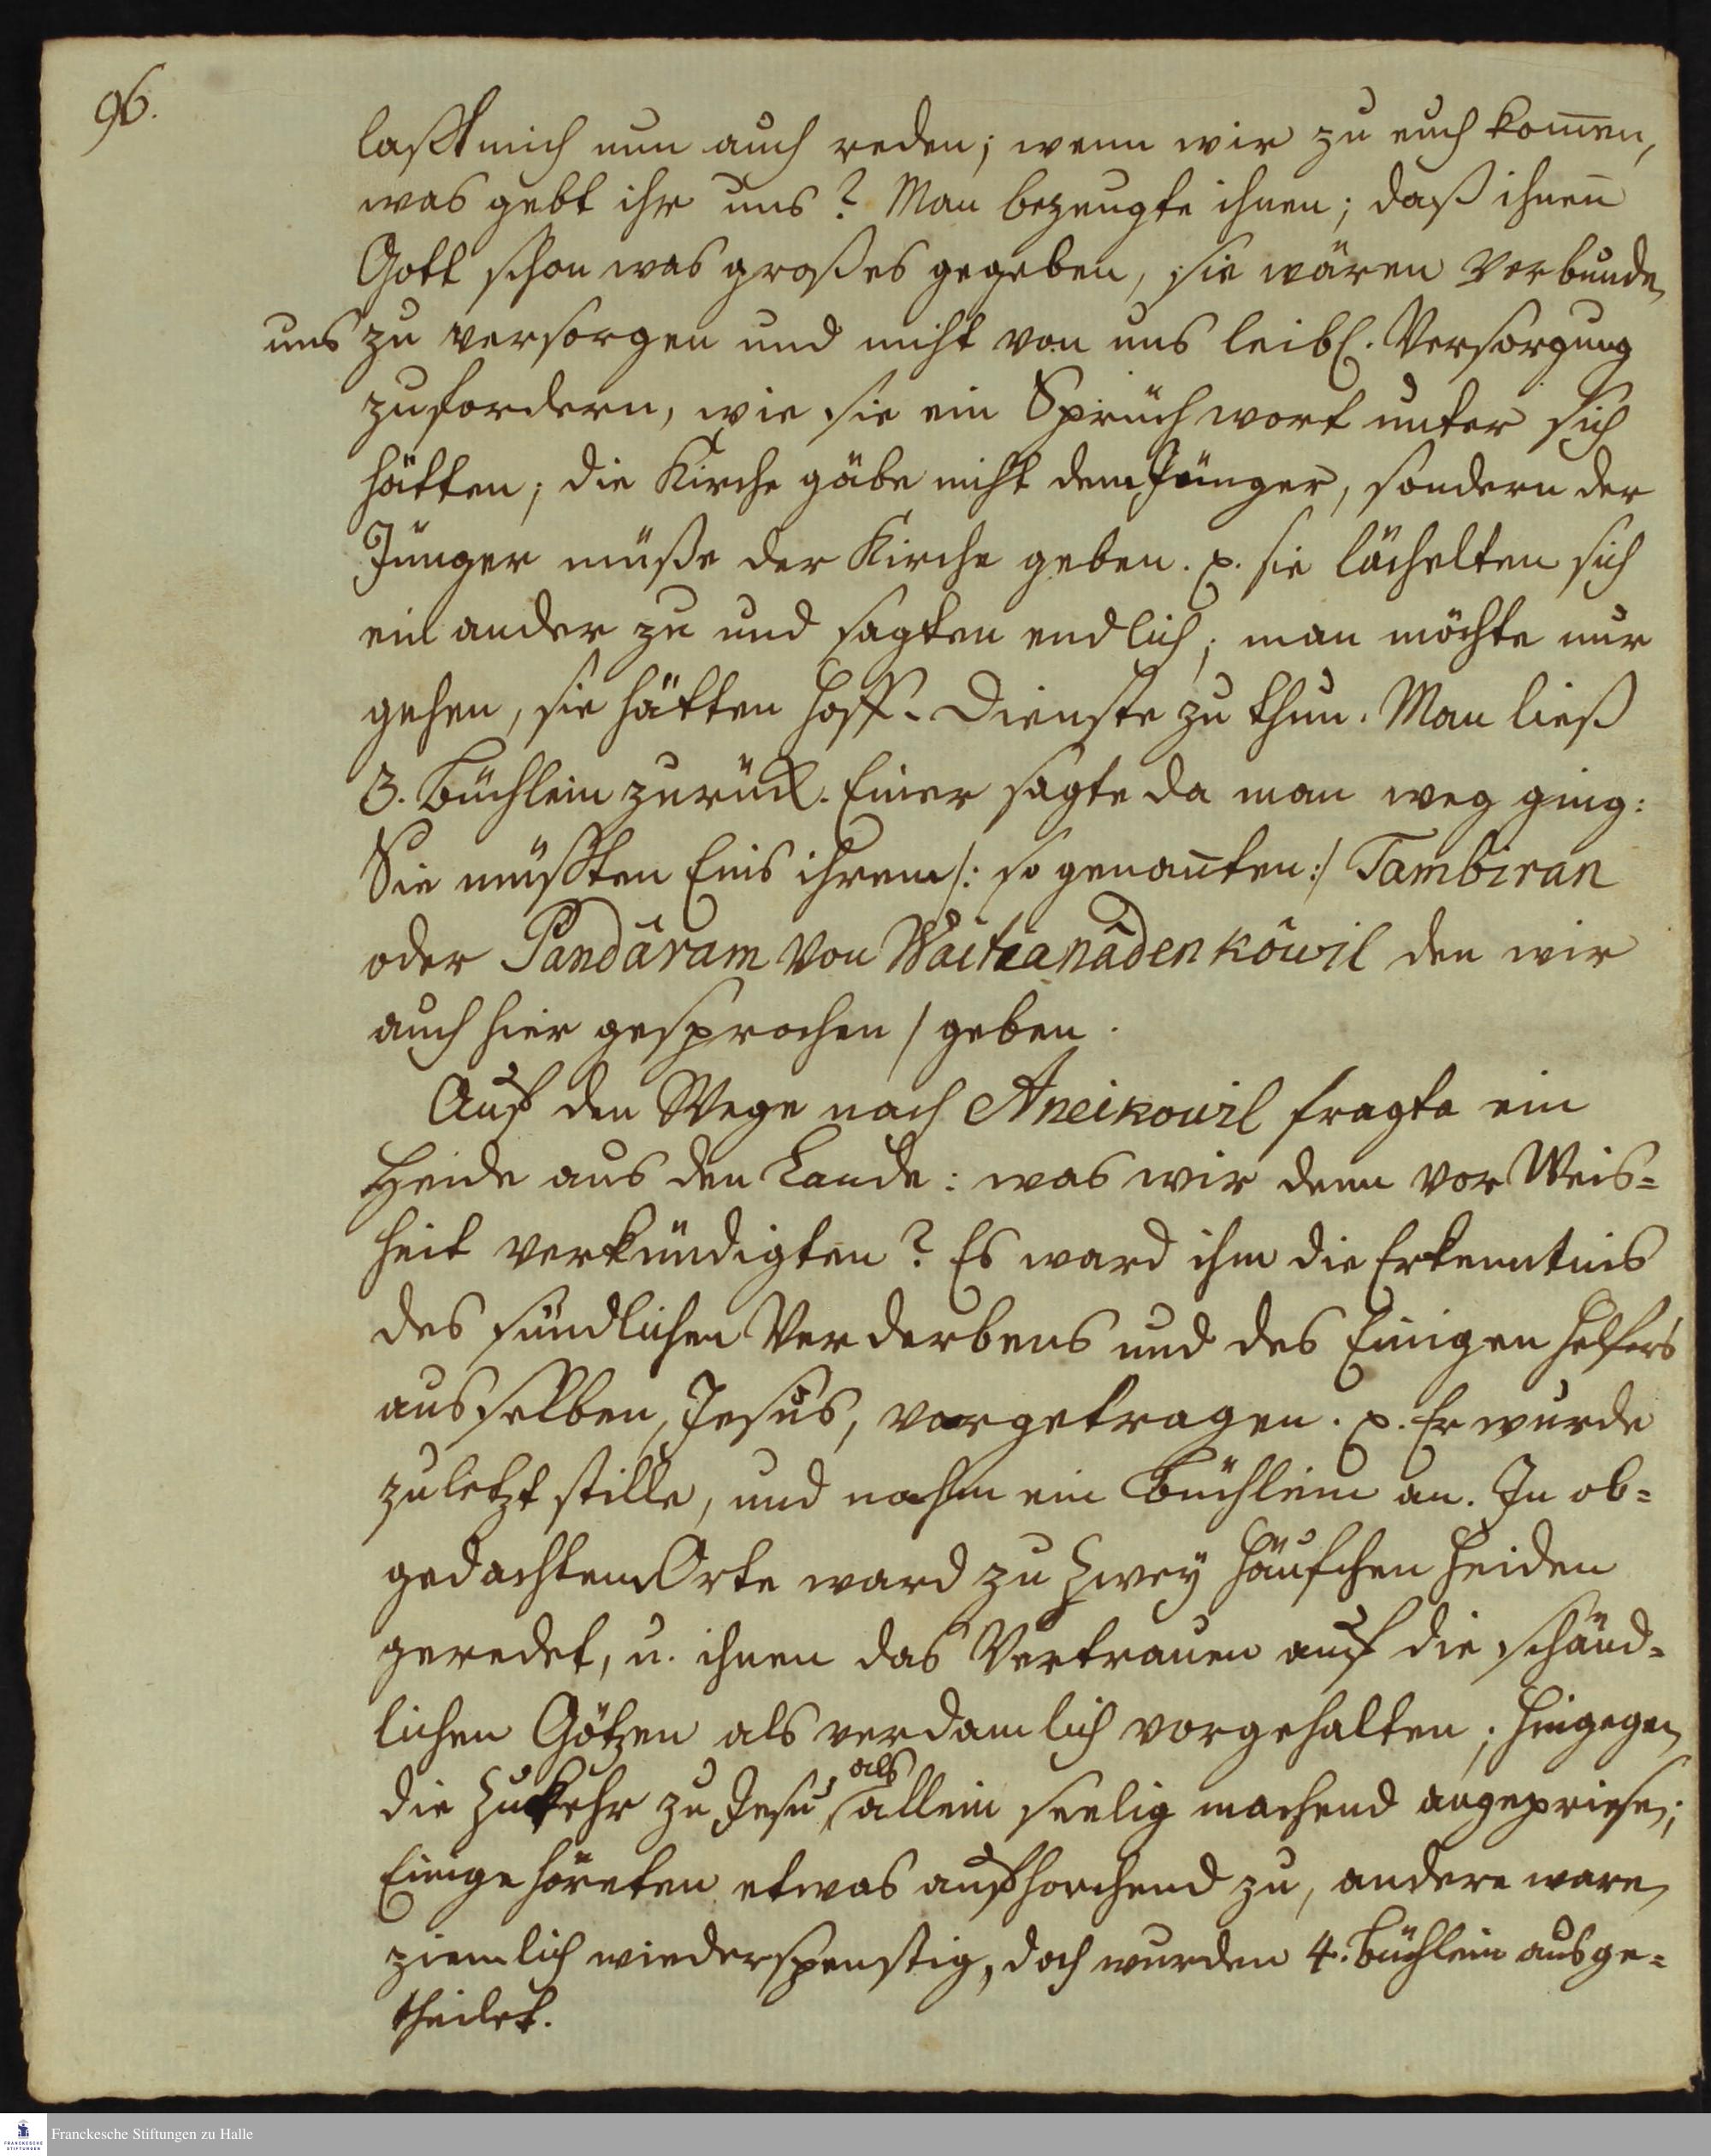 96.
laßt mich nun auch reden; wenn wir zu euch kom̄en,
was gebt ihr uns? Man bezeugte ihnen; daß ihnen
Gott schon was großes gegeben, sie wären verbunden
uns zu versorgen und nicht von uns leibl. Versorgung
zufordern, wie sie ein Sprüchwort unter sich
hätten; die Kirche gäbe nicht dem Jünger, sondern der
Jünger müße der Kirche geben. p. sie lächelten sich
ein ander zu und sagten endlich; man möchte nur
gehen, sie hätten Hoff-Dienste zu thun. Man ließ
3. Büchlein zurück. Einer sagte da man weg ging:
Sie müßten Eins ihrem /: so genan̄ten :/ Tambiran
oder Pandâram von Waitianâdenkôwil den wir
auch hier gesprochen / geben.
Auf den Wege nach Aneikowil fragte ein
Heide aus den Lande: was wir denn vor Weis=
heit verkündigten? Es ward ihm die Erkenntnis
des sündlichen Verderbens und des Einigen Helfers
ausselben, Jesus, vorgetragen. p. Er wurde
zuletzt stille, und nahm ein Büchlein an. In ob=
gedachtem Orte ward zu Zwey Häufchen Heiden
geredet, u. ihnen das Vertrauen auf die schänd=
lichen Götzen als verdamlich vorgehalten; hingegen
die Zukehr zu Jesu, als allein seelig machend angepriesen;
Einige höreten etwas aufhorchend zu, andere waren
ziemlich wiederspenstig, doch wurden 4. Büchlein ausge=
theilet.
Franckesche Stiftungen zu Halle